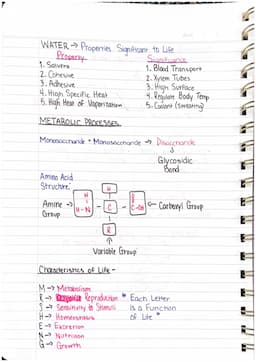 WATER → Properties Significant to Life
Property Significance
1. Solvent 1. Blood Transport
2. Cohesive 2. Xylem Tubes
3. Adhesive 3. High Surface
4. High Specific Heat 4. Regulate Body Temp
5. High Heat of Vaporization 5. Coolant (sweating)
METABOLIC PROCESSES
Monosaccharide + Monosaccharide → Disaccharide
Glycosidic
Bond
Amino Acid
Structure:
H H O
Amine → H-N - C - C-OH ← Carboxyl Group
Group
R
Variable Group
Characteristics of Life -
M → Metabolism
R → Reproduction * Each Letter
S → Sensitivity to Stimuli is a Function
H → Homeostasis of Life *
E → Excretion
N → Nutrition
G → Growth